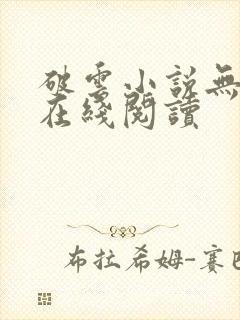 破雲小説無
在綫閱讀
布拉希姆-賽巴